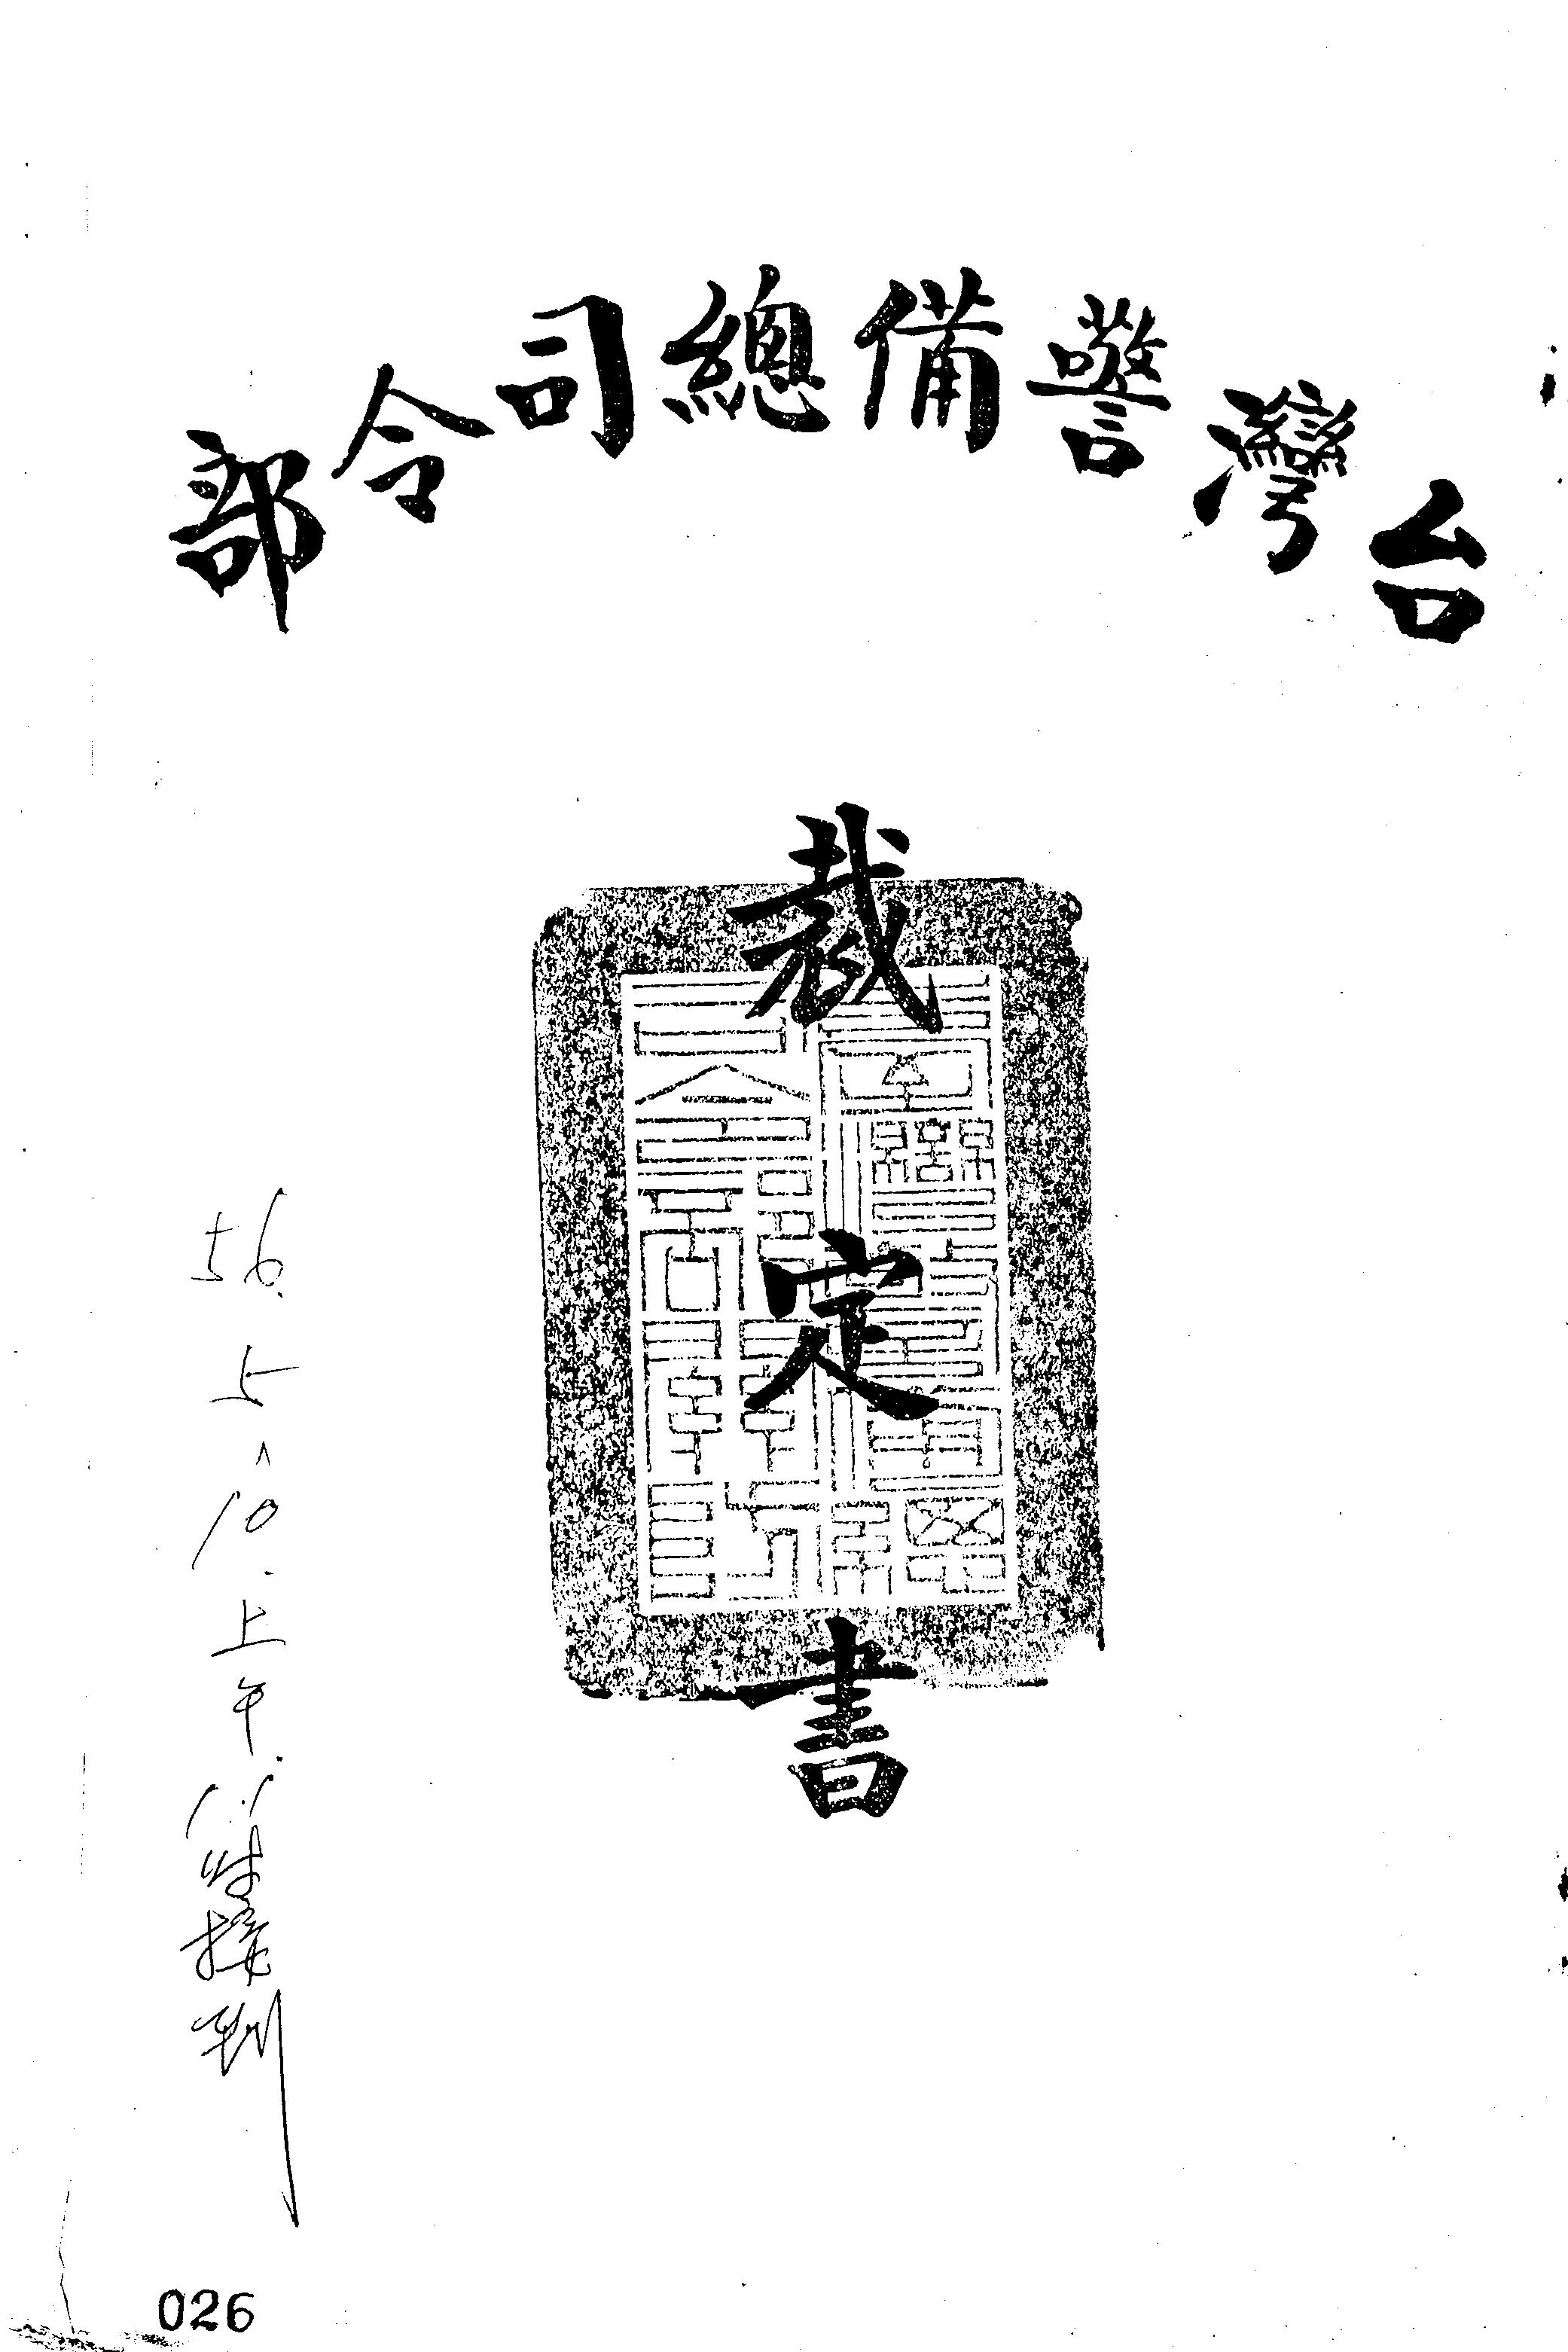 台灣警備總司令部
裁定書
56.5.10.上午11時接到
026